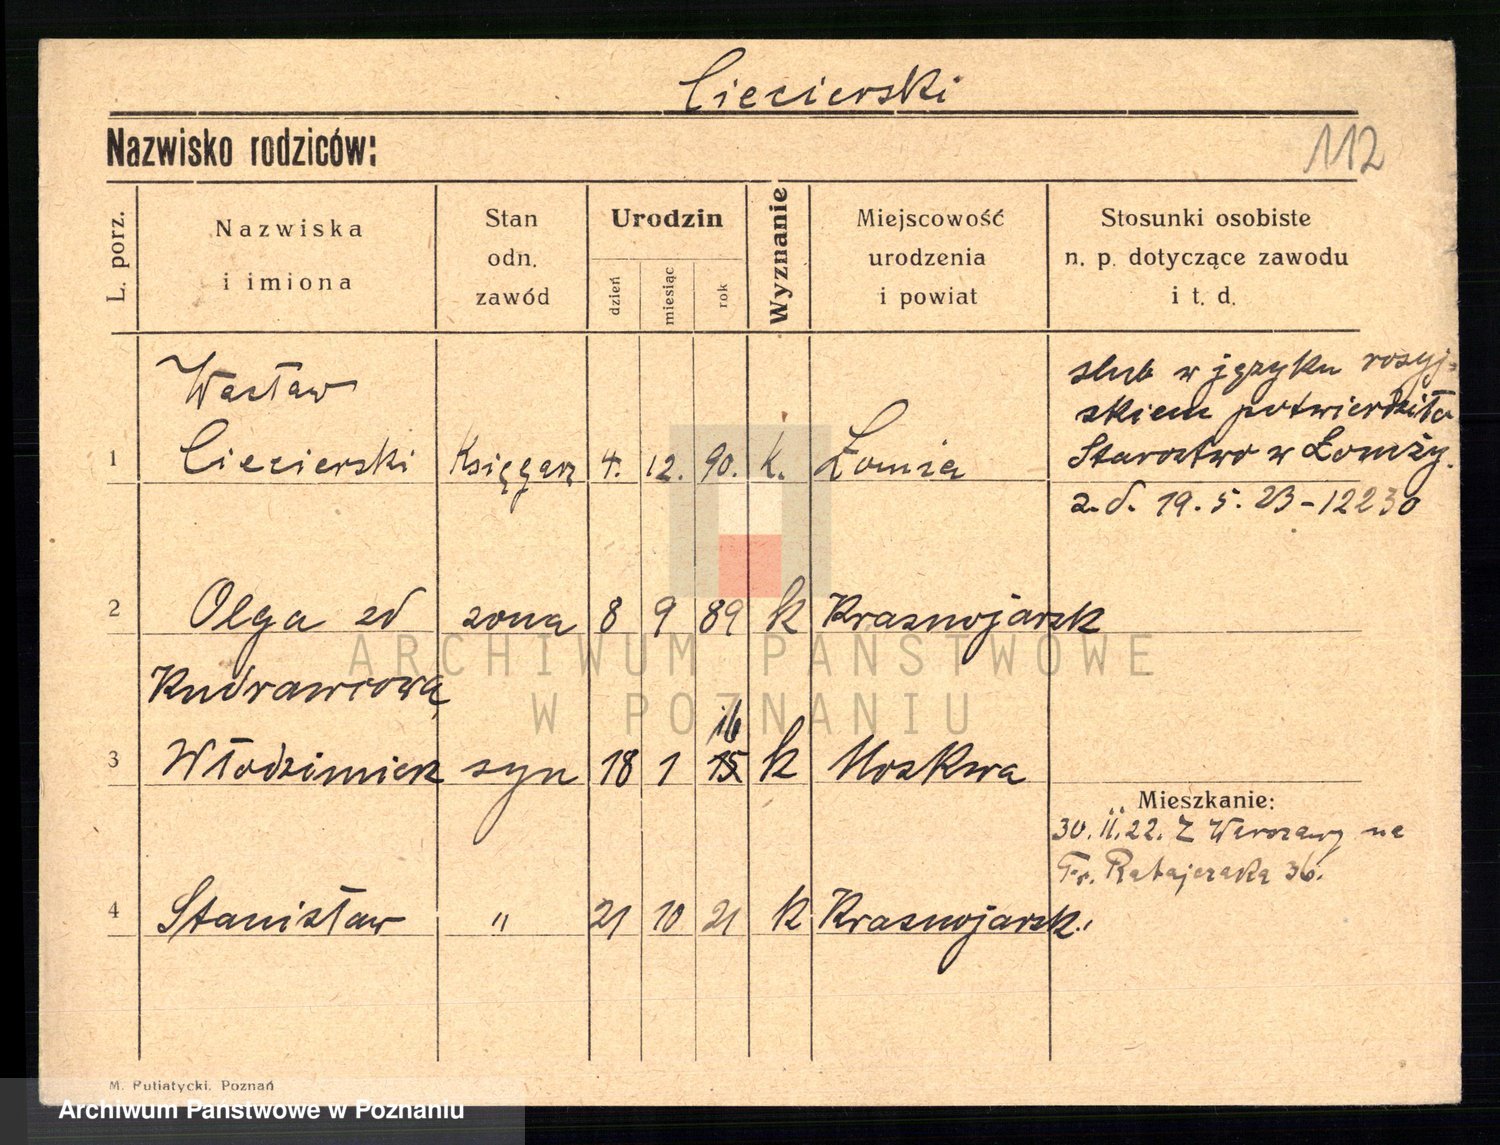 Ciecierski
Nazwisko rodziców:
112
L. porz.
Nazwiska
i imiona
Stan
odn.
zawód
Urodzin
dzień
miesiąc
rok
Wyznanie
Miejscowość
urodzenia
i powiat
Stosunki osobiste
n. p. dotyczące zawodu
i t. d.
Wacław
1 Ciecierski Księgarz 4. 12. 90. k. Łomia
slub w języku rosyj-
skiem potwierdziło
Starostwo w Łomży.
z. d. 19. 5. 23 - 12230
2 Olga zd zona 8 9 89 k Krasnojarsk
Kudrawcową
16
3 Włodzimierz syn 18 1 15 k Moskwa
Mieszkanie:
30. II. 22. Z Warszawy na
Fr. Ratajczaka 36.
4 Stanisław " 21 10 21 k Krasnojarsk.
M. Putiatycki. Poznań
ARCHIWUM PAŃSTWOWE
W POZNANIU
Archiwum Państwowe w Poznaniu